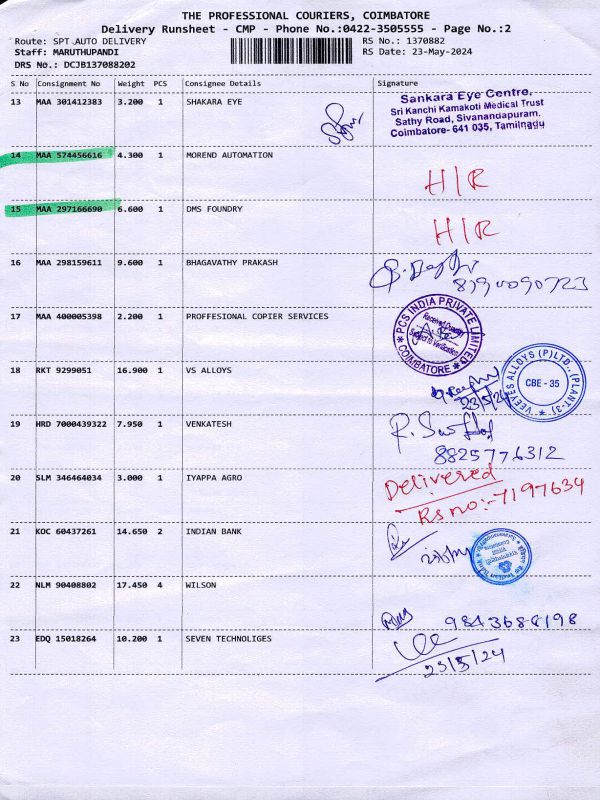 THE PROFESSIONAL COURIERS, COIMBATORE
Delivery Runsheet - CMP - Phone No.:0422-3505555 - Page No.:2
Route: SPT AUTO DELIVERY RS No.: 1370882
Staff: MARUTHUPANDI RS Date: 23-May-2024
DRS No.: DCJB137088202
S No Consignment No Weight PCS Consignee Details Signature
13 MAA 301412383 3.200 1 SHAKARA EYE
Sankara Eye Centre,
Sri Kanchi Kamakoti Medical Trust
Sathy Road, Sivanandapuram,
Coimbatore- 641 035, Tamilnadu
14 MAA 574456616 4.300 1 MOREND AUTOMATION
H/R
15 MAA 297166690 6.600 1 DMS FOUNDRY
H/R
16 MAA 298159611 9.600 1 BHAGAVATHY PRAKASH
8190090723
17 MAA 400005398 2.200 1 PROFFESIONAL COPIER SERVICES
PCS INDIA PRIVATE LIMITED
COIMBATORE
18 RKT 9299051 16.900 1 VS ALLOYS
23/5/24
VEEYES ALLOYS (P) LTD., (PLANT-3)
CBE - 35
19 HRD 7000439322 7.950 1 VENKATESH
8825776312
20 SLM 346464034 3.000 1 IYAPPA AGRO
Delivered
Rs no:-7197634
21 KOC 60437261 14.650 2 INDIAN BANK
22 NLM 90408802 17.450 4 WILSON
9843688198
23 EDQ 15018264 10.200 1 SEVEN TECHNOLIGES
23/5/24